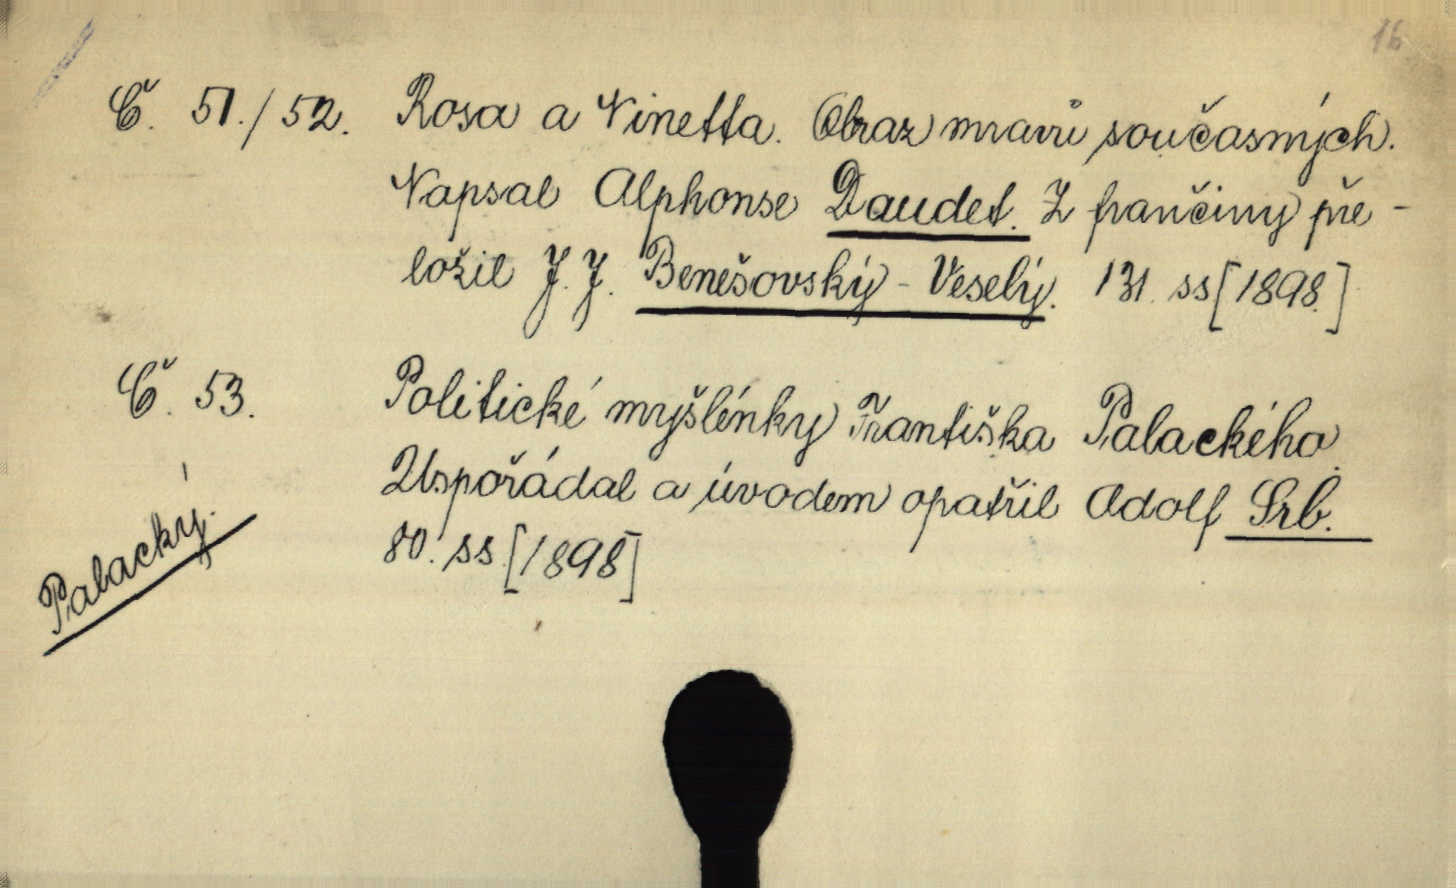 16
Č. 51./52. Rosa a Ninetta. Obraz mravů současných.
Napsal Alphonse Daudet. Z frančiny pře-
ložil J. J. Benešovský-Veselý. 131. ss[1898.]
Č. 53. Politické myšlénky Františka Palackého.
Uspořádal a úvodem opatřil Adolf Srb.
80. ss.[1898]
Palacký.